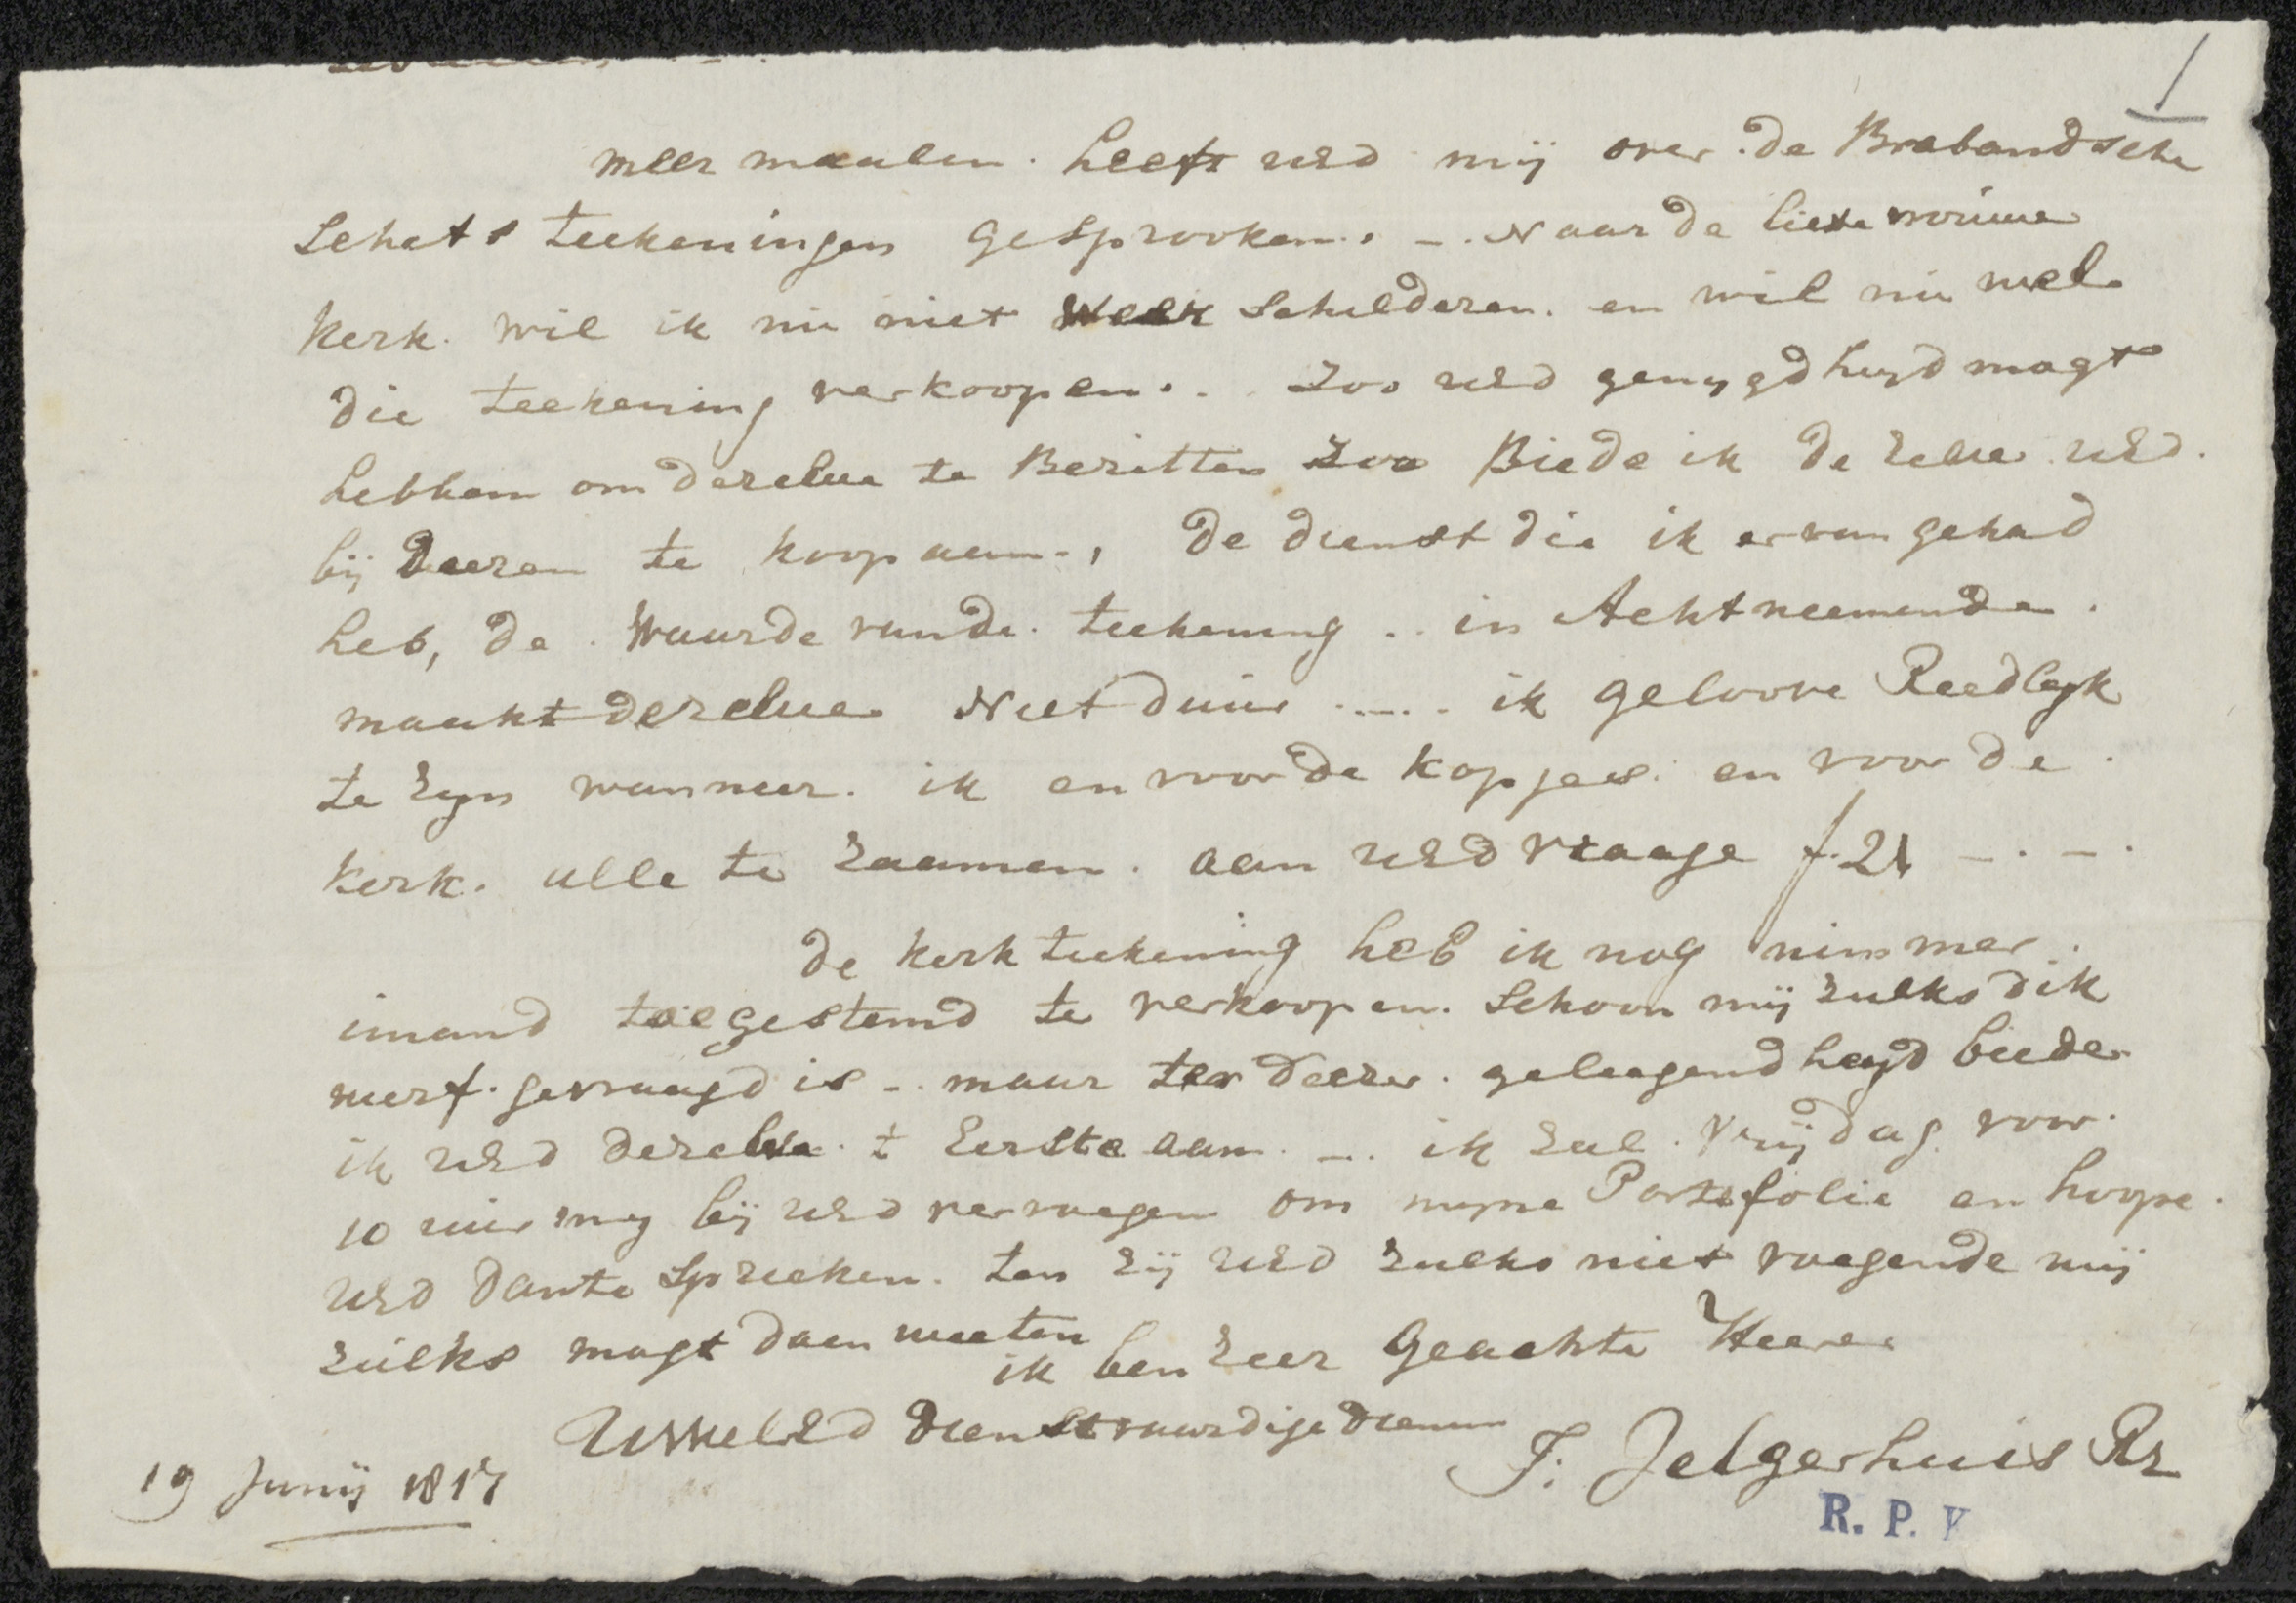 1
meer maalen. heeft UEd mij over de Brabandsche
schets teekeningen gesprooken. -. Naar de lieve vrouwe
kerk. wil ik nu niet weer schilderen. en wil nu wel.
die teekening verkoopen. . . zoo UEd genygdhuyd magt
hebben om dezelve te Bezitten zoo Biede ik de zelve UEd.
bij deezen te koop aan., de dienst die ik er van gehad
heb, de. Waarde van de. teekening . . in Acht neemende.
maakt dezelve Niet duur ..-.. ik geloove Reedlyk
te zyn wanneer. ik en voor de kopjes. en voor de.
kerk. alle te zaamen. aan UEd vraage f. 21 -.-.
de kerk teekening heb ik nog nimmer.
imand toegestemd te verkoopen. schoon mij zulks dik
werf. gevraagd is -. maar ter deezer. geleegendheyd biede
ik UEd dezelve. t Eerste aan. -. ik zal. Vrijdag. voor.
10 uur my bij UEd vervoegen om myne Portefolie en hoope.
UEd dan te spreeken. ten zij UEd zulks niet voegende mij
zulks magt doen weeten
ik ben zeer Geachte Heere
UWelEd dienstvaardige dienaar
J. Jelgerhuis Rz
19 Junij 1817
R. P. V